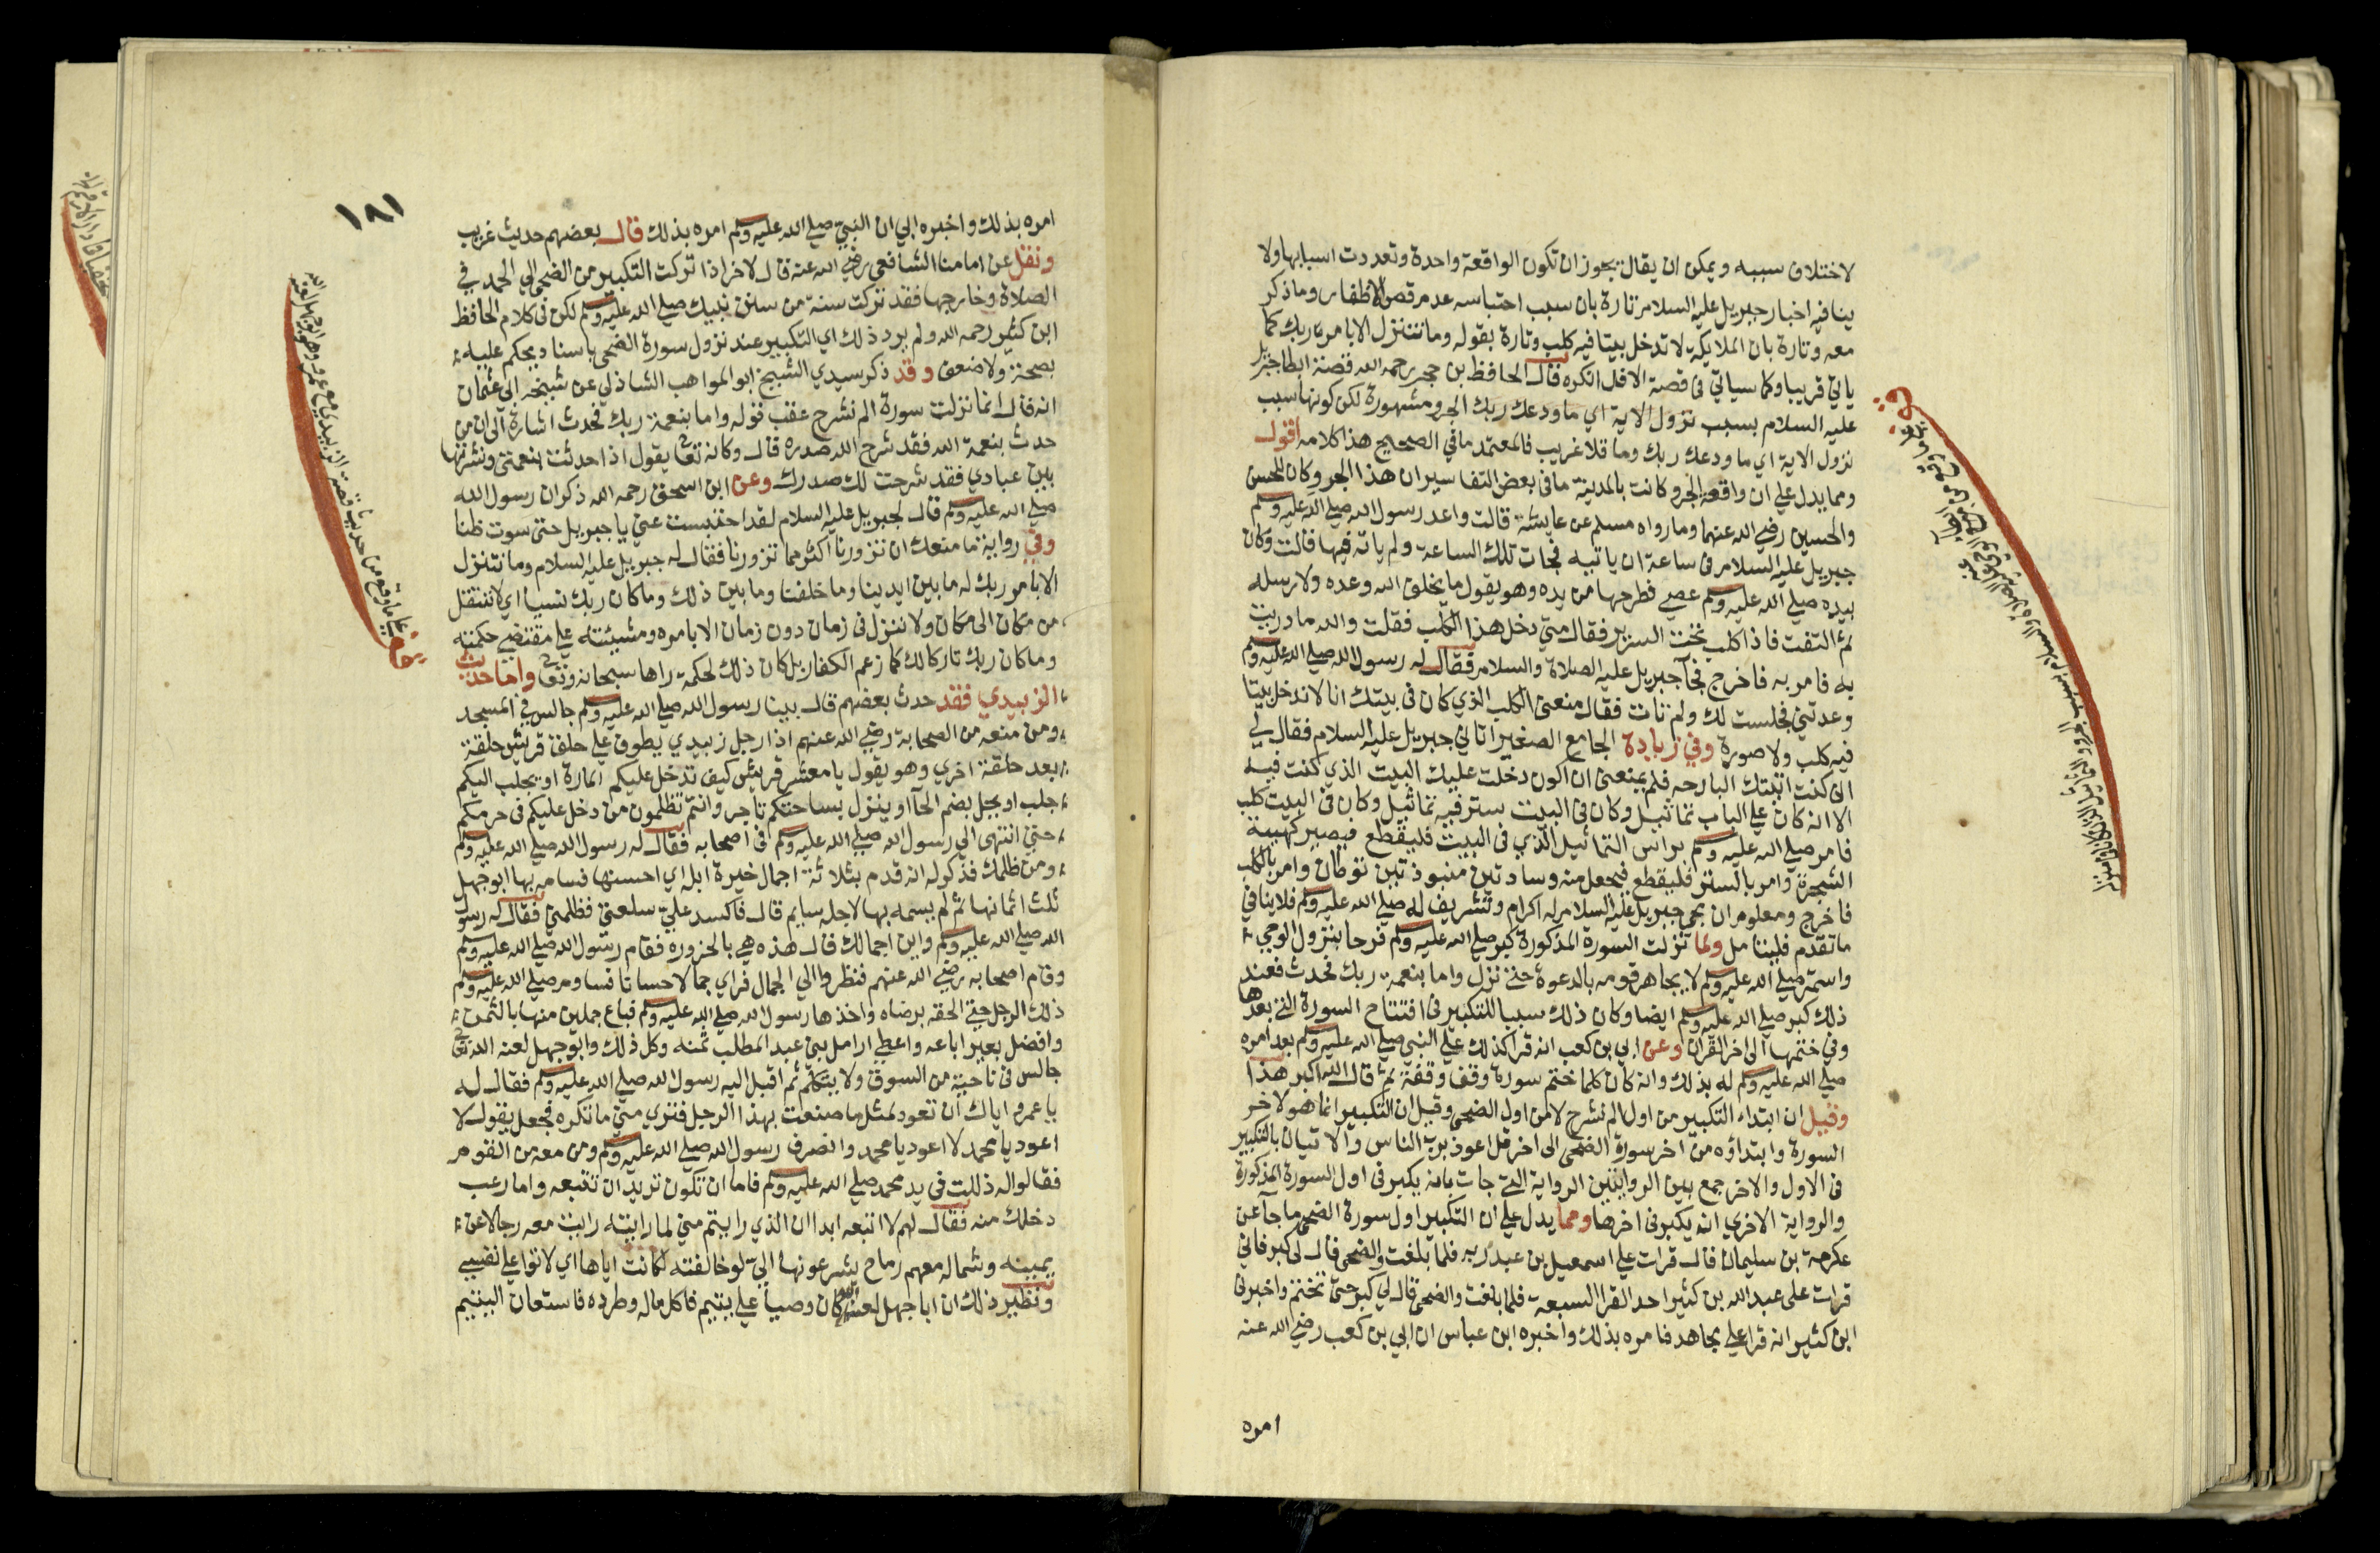 لاختلاف سببه ويمكن ان يقال يجوز ان تكون الواقعة واحدة وتعددت اسبابها ولا
ينافيه اخبار جبريل عليه السلام تارة بان سبب احتباسه عدم قص الاظفار وما ذكر
معه وتارة بان الملايكة لا تدخل بيتا فيه كلب وتارة بقوله وما نتنزل الا بامر ربك كما
ياتي قريبا وكما سياتي في قصة الافك الكره قال الحافظ بن حجر رحمه الله قصة ابطا جبريل
عليه السلام بسبب نزول الاية اي ما ودعك ربك الجرو مشهورة لكن كونها سبب
نزول الاية اي ما ودعك ربك وما قلا غريب فالمعتمد ما في الصحيح هذا كلامه اقول
ومما يدل على ان واقعة الجرو كانت بالمدينة ما في بعض التفاسير ان هذا الجرو كان للحسن
والحسين رضي الله عنهما وما رواه مسلم عن عايشة قالت واعد رسول الله صلى الله عليه وسلم
جبريل عليه السلام في ساعة ان ياتيه فجات تلك الساعة ولم ياته فيها قالت وكان
بيده صلى الله عليه وسلم عصي فطرحها من يده وهو يقول ما يخلف الله وعده ولا رسله
ثم التفت فاذا كلب تحت السرير فقال متى دخل هذا الكلب فقلت والله ما دريت
به فامر به فاخرج فجآ جبريل عليه الصلاة والسلام فقال له رسول الله صلى الله عليه وسلم
وعدتني فجلست لك ولم تات فقال منعني الكلب الذي كان في بيتك انا لا ندخل بيتا
فيه كلب ولا صورة وفي زيادة الجامع الصغير اتاني جبريل عليه السلام فقال لي
اني كنت اتيتك البارحه فلم يمنعني ان اكون دخلت عليك البيت الذي كنت فيه
الا انه كان على الباب تماثيل وكان في البيت ستر فيه تماثيل وكان في البيت كلب
فامر صلى الله عليه وسلم براس التماثيل الذي في البيت فليقطع فيصير كهيية
الشجرة وامر بالستر فليقطع فيجعل منه وسادتين منبوذتين توطان وامر بالكلب
فاخرج ومعلوم ان مجي جبريل عليه السلام له اكرام وتشريف له صلى الله عليه وسلم فلا ينافي
ما تقدم فليتامل ولما نزلت السورة المذكورة كبر صلى الله عليه وسلم فرحا بنزول الوحي
واستمر صلى الله عليه وسلم لا يجاهر قومه بالدعوة حتى نزل واما بنعمة ربك فحدث فعند
ذلك كبر صلى الله عليه وسلم ايضا وكان ذلك سببا للتكبير في افتتاح السورة التي بعدها
وفي ختمها الى اخر القران وعن ابي بن كعب انه قرا كذلك على النبي صلى الله عليه وسلم بعد امره
صلى الله عليه وسلم له بذلك وانه كان كلما ختم سورة وقف وقفة ثم قال الله اكبر هذا
وقيل ان ابتداء التكبير من اول الم نشرح لا من اول الضحى وقيل ان التكبير انما هو لاخر
السورة وابتداؤه من اخر سورة الضحى الى اخر قل اعوذ برب الناس والاتيان بالتكبير
في الاول والاخر جمع بين الروايتين الرواية التي جات بانه يكبر في اول السورة المذكورة
والرواية الاخري انه يكبر في اخرها ومما يدل على ان التكبير اول سورة الضحى ما جآ عن
عكرمة بن سليمان قال قرات على اسمعيل بن عبد ربه فلما بلغت والضحى قال لي كبر فاني
قرات على عبد الله بن كثير احد القرا السبعة فلما بلغت والضحى قال لي كبر حتى تختم واخبرني
ابن كثير انه قرا على مجاهد فامره بذلك واخبره ابن عباس ان ابي بن كعب رضي الله عنه
امره
١٨١
امره بذلك واخبره ابي ان النبي صلى الله عليه وسلم امره بذلك قال بعضهم حديث غريب
ونقل عن امامنا الشافعي رضي الله عنه قال لاخر اذا تركت التكبير من الضحى الى الحمد في
الصلاة وخارجها فقد تركت سنة من سنن نبيك صلى الله عليه وسلم لكن في كلام الحافظ
ابن كثير رحمه الله ولم يرد ذلك اي التكبير عند نزول سورة الضحى باسناد يحكم عليه
بصحة ولا ضعف وقد ذكر سيدي الشيخ ابو المواهب الشاذلي عن شيخه ابي عثمان
انه قال انما نزلت سورة الم نشرح عقب قوله واما بنعمة ربك فحدث اشارة الى ان من
حدث بنعمة الله فقد شرح الله صدره قال وكانه تعا يقول اذا حدثت بنعمتي ونشرتها
بين عبادي فقد شرحت لك صدرك وعن ابن اسحق رحمه الله ذكر ان رسول الله
صلى الله عليه وسلم قال لجبريل عليه السلام لقد احتبست عني يا جبريل حتى سوت ظنا
وفي رواية ما منعك ان تزورنا اكثر مما تزورنا فقال له جبريل عليه السلام وما نتنزل
الا بامر ربك له ما بين ايدينا وما خلفنا وما بين ذلك وما كان ربك نسيا اي لا ننتقل
من مكان الى مكان ولا ننزل في زمان دون زمان الا بامره ومشيئته على مقتضي حكمته
وما كان ربك تاركا لك كما زعم الكفار بل كان ذلك لحكمة راها سبحانه وتعا واما حديث
الزبيدي فقد حدث بعضهم قال بينا رسول الله صلى الله عليه وسلم جالس في المسجد
ومن معه من الصحابة رضي الله عنهم اذا رجل زبيدي يطوف على حلق قريش حلقة
بعد حلقة اخري وهو يقول يا معشر قريش كيف تدخل عليكم المارة او يجلب اليكم
جلب او يحل بضم الحآ او ينزل بساحتكم تاجر وانتم تظلمون من دخل عليكم في حرمكم
حتى انتهى الى رسول الله صلى الله عليه وسلم في اصحابه فقال له رسول الله صلى الله عليه وسلم
ومن ظلمك فذكر له انه قدم بثلاثة اجمال خيرة ابله اي احسنها فسامه بها ابو جهل
ثلث اثمانها ثم لم يسمه بها لاجله سايم قال فاكسد علي سلعتي فظلمني فقال له رسول
الله صلى الله عليه وسلم واين اجمالك قال هذه هي بالحزورة فقام رسول الله صلى الله عليه وسلم
وقام اصحابه رضي الله عنهم فنظروا الى الجمال فراي جمالا حسانا فساوم صلى الله عليه وسلم
ذلك الرجل حتى الحقه برضاه واخذها رسول الله صلى الله عليه وسلم فباع جملين منها بالثمن
وافضل بعيرا باعه واعطى ارامل بني عبد المطلب ثمنه وكل ذلك وابو جهل لعنه الله تعا
جالس في ناحية من السوق ولا يتكلم ثم اقبل اليه رسول الله صلى الله عليه وسلم فقال له
يا عمرو اياك ان تعود لمثل ما صنعت بهذا الرجل فترى مني ما تكره فجعل يقول لا
اعود يا محمد لا اعود يا محمد وانصرف رسول الله صلى الله عليه وسلم ومن معه من القوم
فقالوا له ذللت في يد محمد صلى الله عليه وسلم فاما ان تكون تريد ان تتبعه واما رعب
دخلك منه فقال لهم لا اتبعه ابدا ان الذي رايتم مني لما رايته رايت معه رجالا عن
يمينه وشماله معهم رماح يشرعونها الي لو خالفته لكانت اياها اي لاتوا على نفسي
ونظير ذلك ان ابا جهل لعنه الله كان وصيا على يتيم فاكل ماله وطرده فاستعان اليتيم